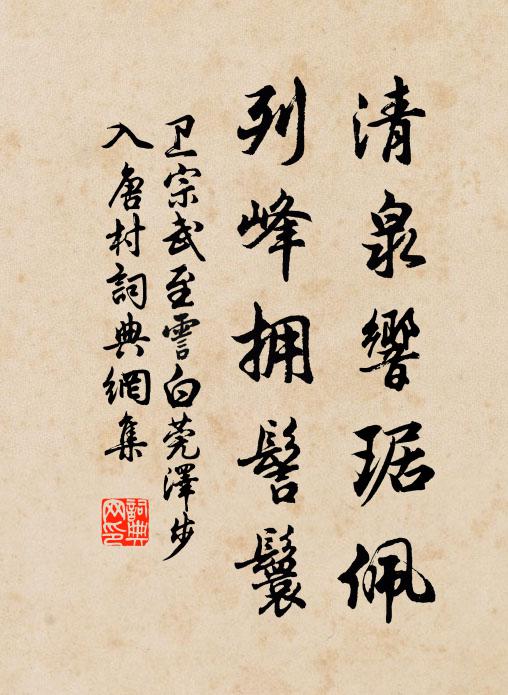 清泉響琚佩
列峰拥髻鬟
卫宗武至霅白莞澤步
入唐村詞典網集
詞典網印